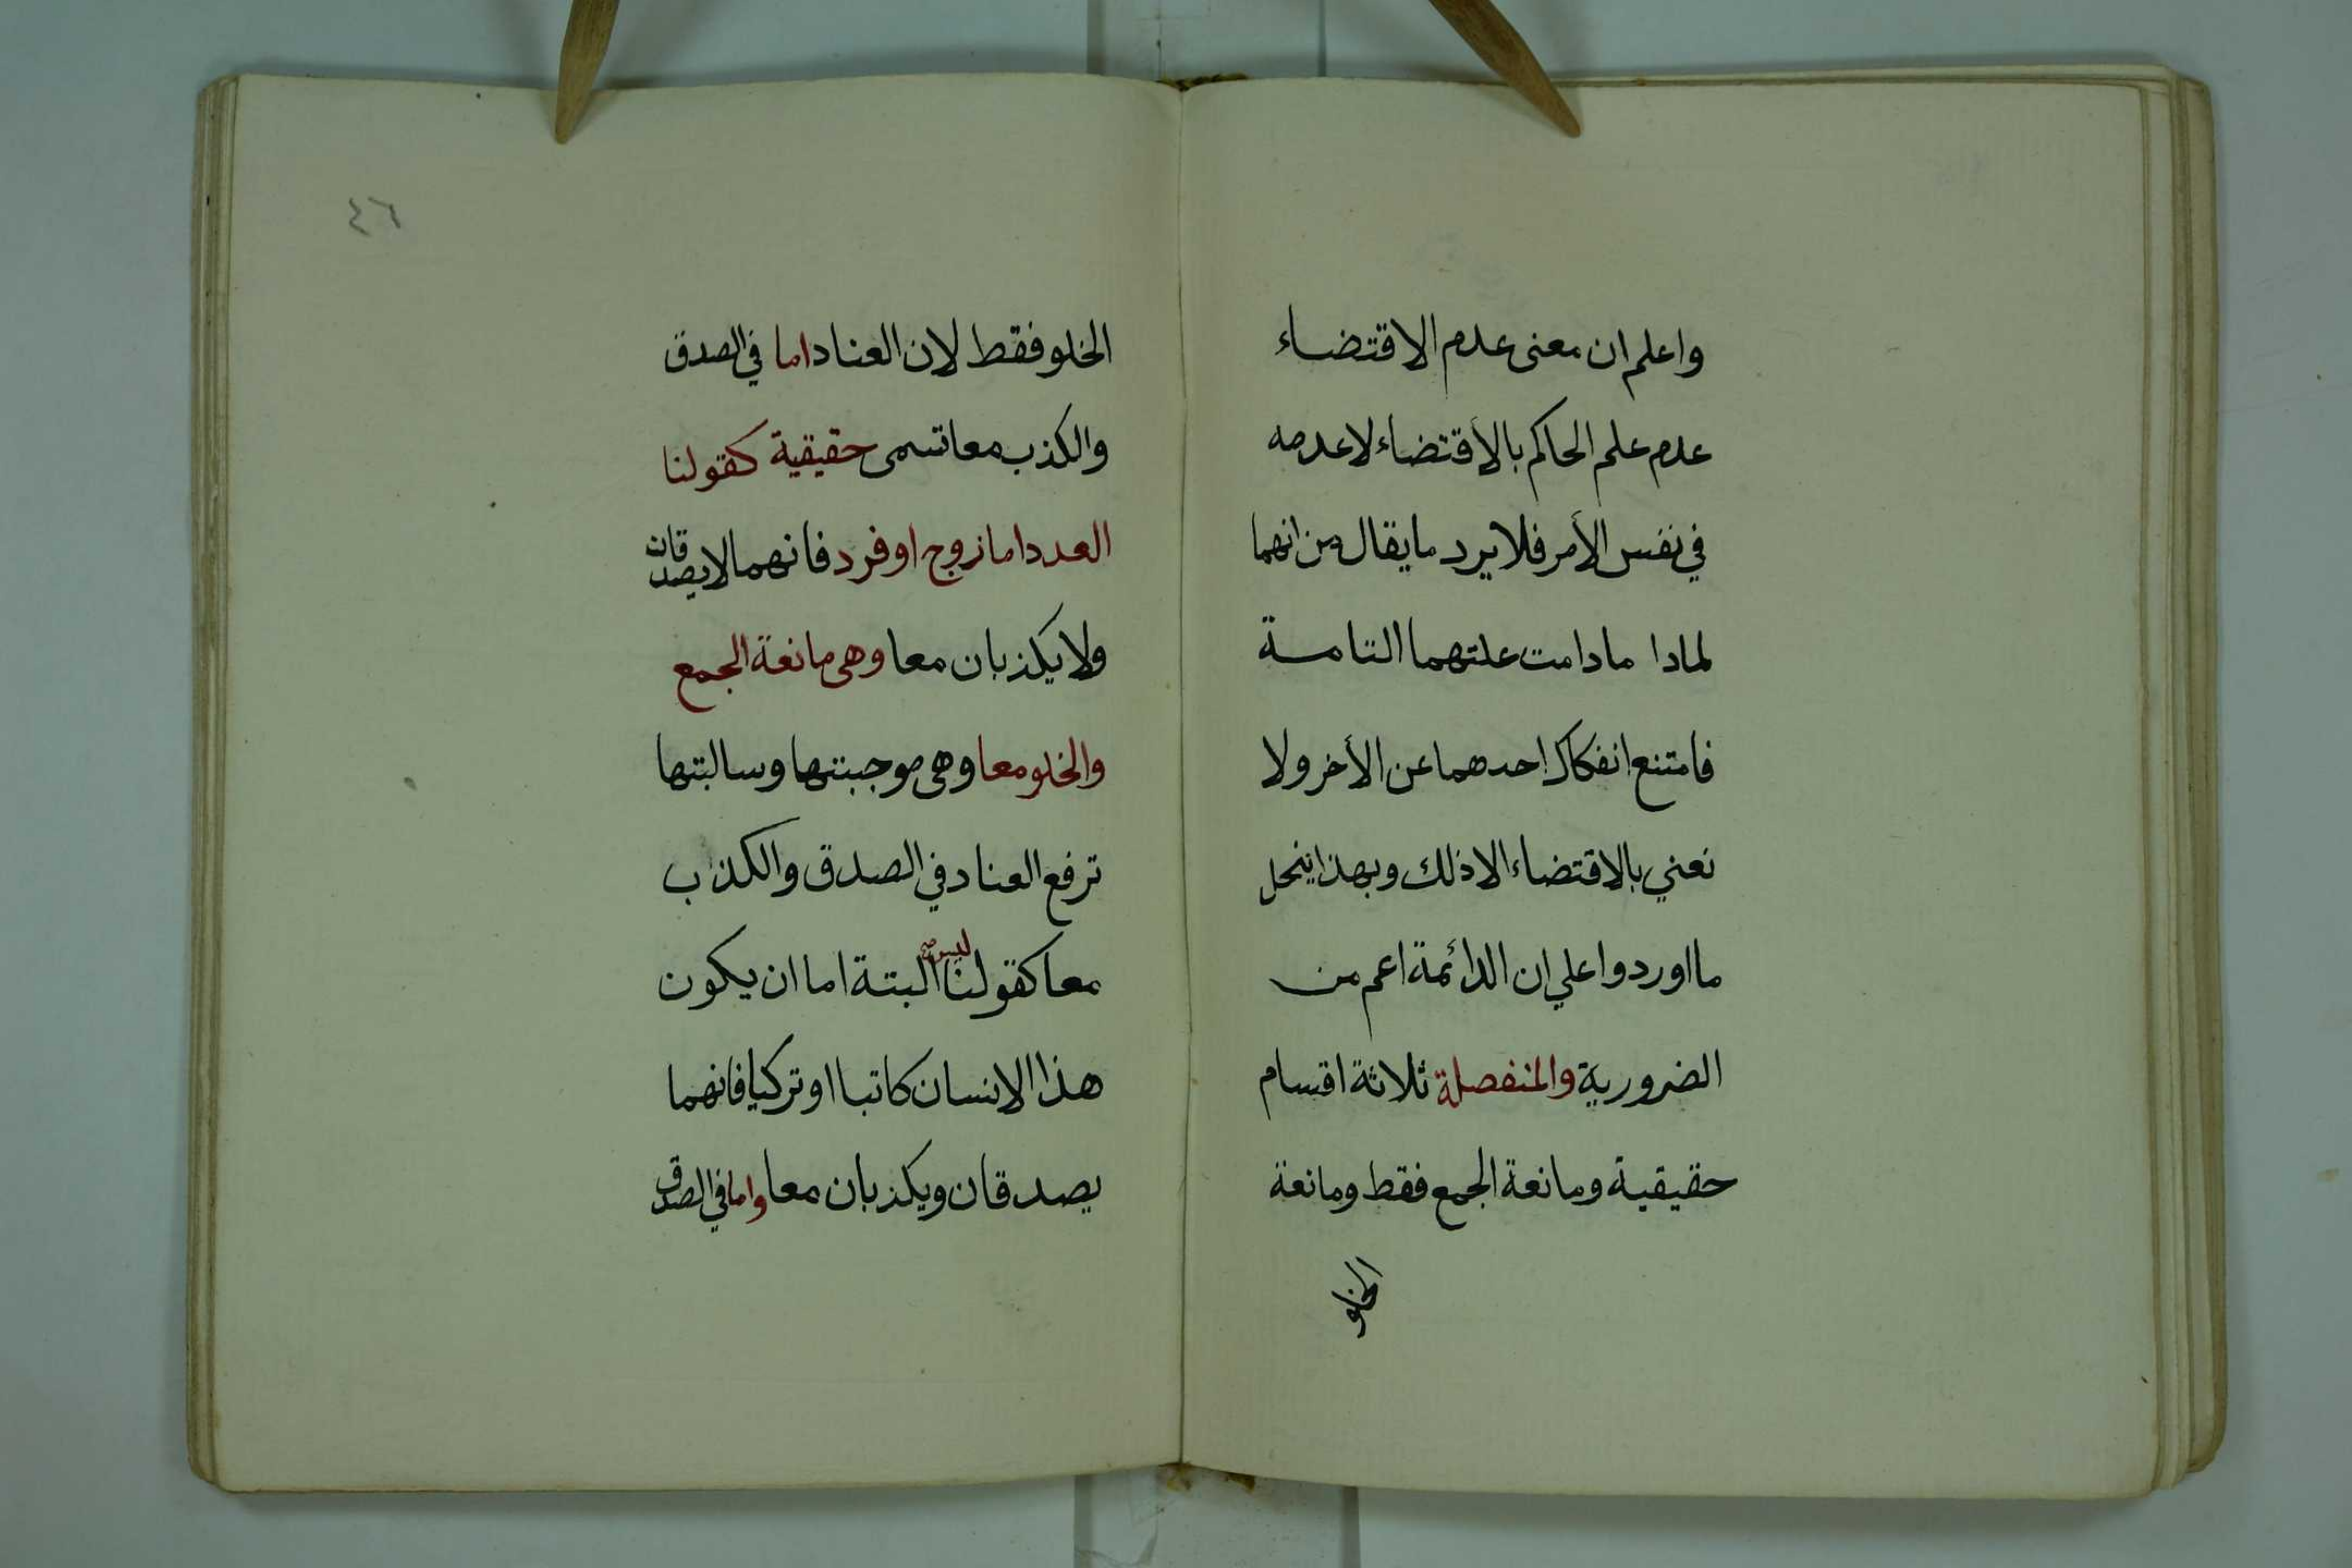 واعلم ان معنى عدم الاقتضاء
عدم علم الحاكم بالأقتضاء لا عدمه
في نفس الأمر فلا يرد ما يقال من انهما
لمادا ما دامت علتهما التامة
فامتنع انفكاك احدهما عن الأخر ولا
نعني بالاقتضاء الا ذلك وبهذا ينحل
ما اوردوا علي ان الدائمة اعم من
الضرورية والمنفصلة ثلاثة اقسام
حقيقية ومانعة الجمع فقط ومانعة
الخلو
٤٦
الخلو فقط لان العناد اما في الصدق
والكذب معا تسمى حقيقية كقولنا
العدد اما زوج او فرد فانهما لا يصدقان
ولا يكذبان معا وهى مانعة الجمع
والخلو معا وهى موجبتها وسالبتها
ترفع العناد في الصدق والكذب
معا كقولنا ليس البتة اما ان يكون
هذا الانسان كاتبا او تركيا فانهما
يصدقان ويكذبان معا واما في الصدق